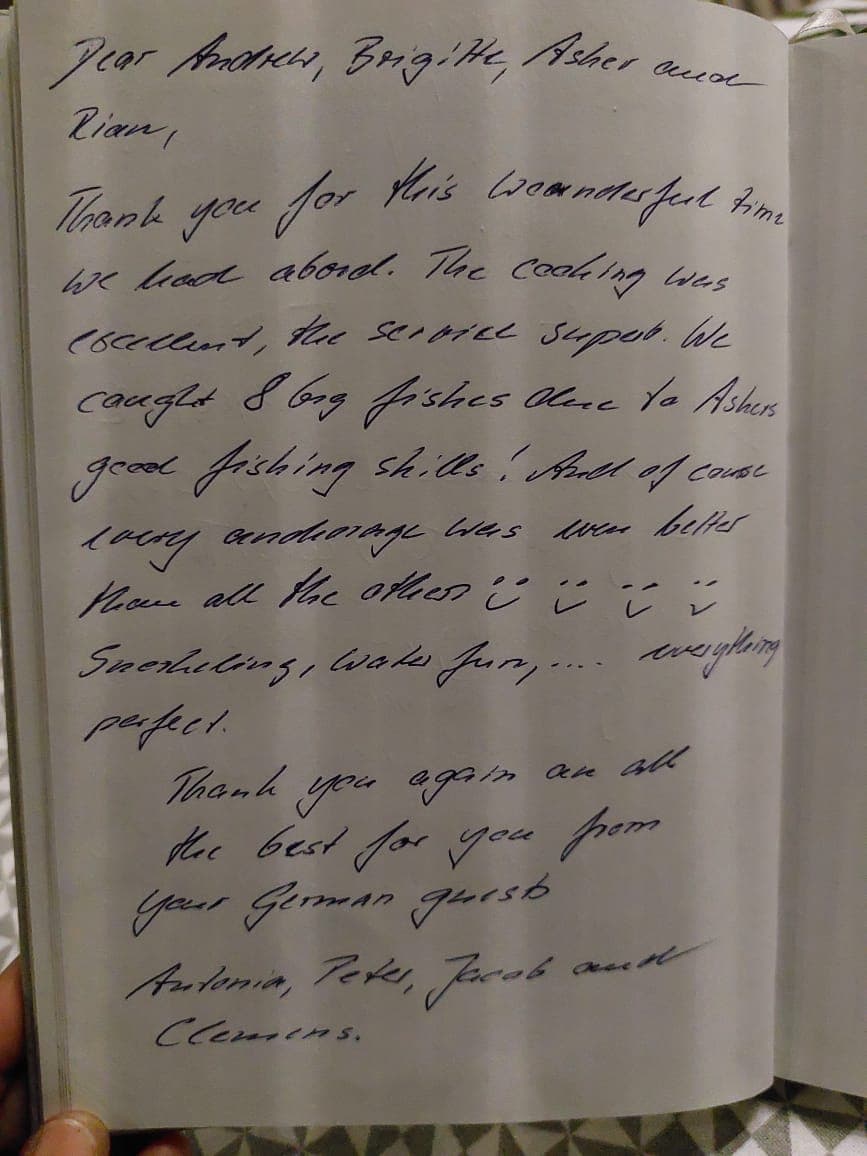 Dear Andrew, Brigitte, Asher and
Rian,
Thank you for this woanderful time
we had abord. The cooking was
excellent, the service superb. We
caught 8 big fishes due to Ashers
good fishing skills! And of course
every anchorage was even better
than all the others :) :) :) :)
Snorkeling, water fun, .... everything
perfect.
Thank you again an all
the best for you from
your German guests
Antonia, Peter, Jacob and
Clemens.